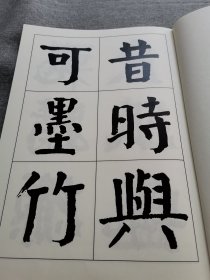 昔時與
可墨竹